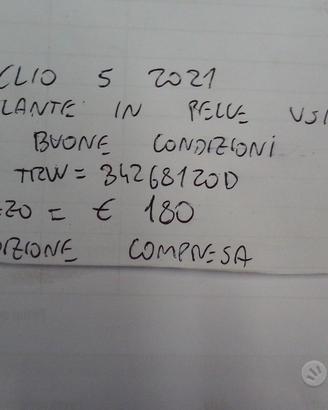 CLIO 5 2021
LANTE IN PELLE USA
BUONE CONDIZIONI
TRW = 34268120D
ZZO = € 180
DIZIONE COMPRESA